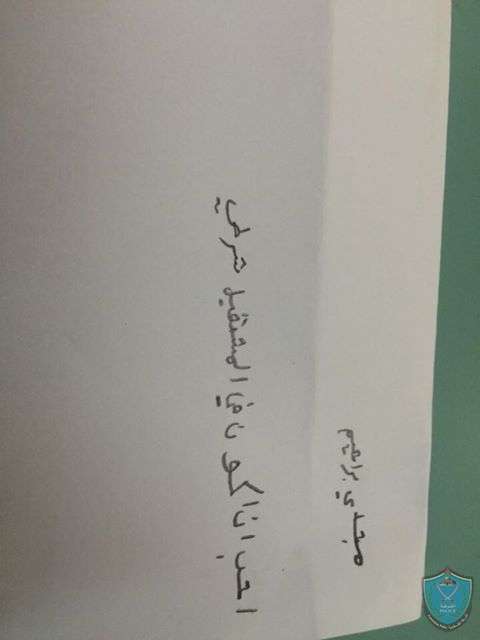 مجدي براهيم
احب انا اكون في المستقبل شرطي